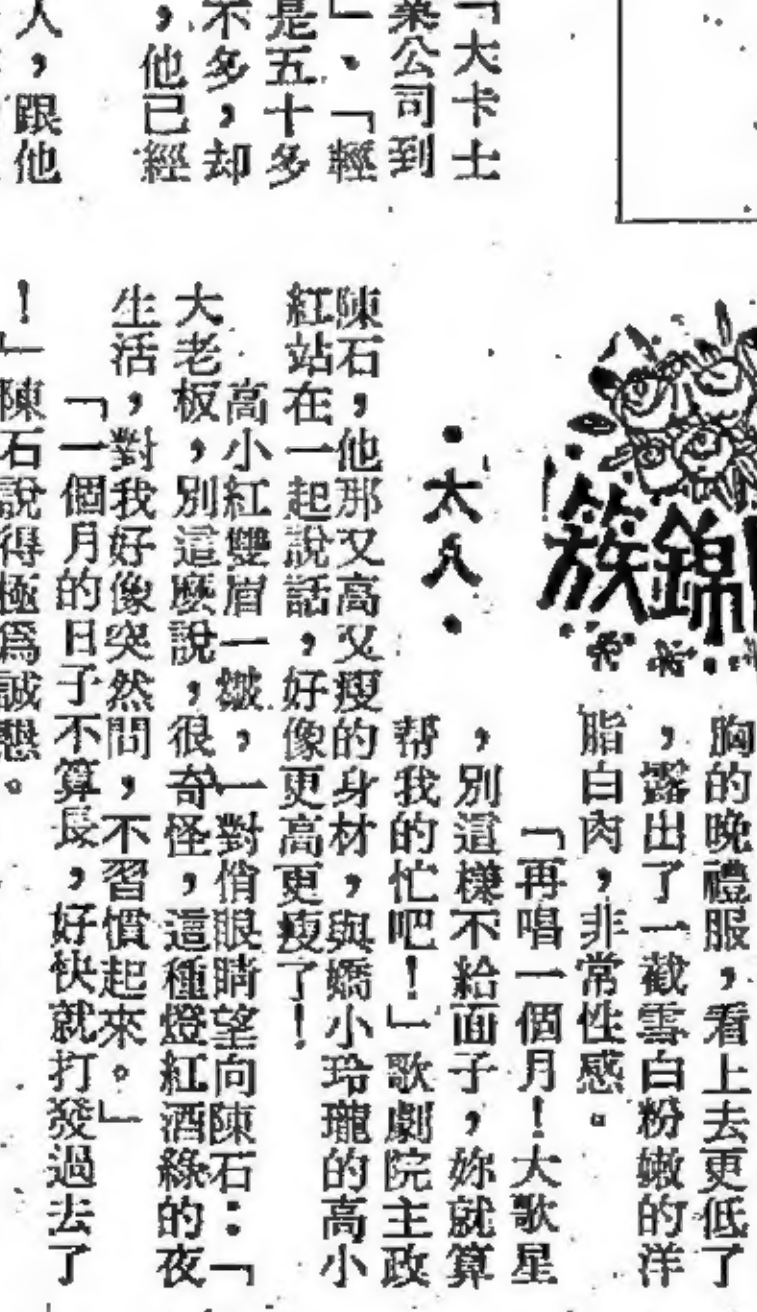 「大卡士
業公司到
」、「輕
是五十多
不多，却
，他已經
人，跟他
錦簇
·太凡·
胸的晚禮服，看上去更低了
，露出了一截雪白粉嫩的洋
脂白肉，非常性感。
「再唱一個月！大歌星
，別這樣不給面子，妳就算
帮我的忙吧！」歌劇院主政
陳石，他那又高又瘦的身材，與嬌小玲瓏的高小
紅站在一起說話，好像更高更瘦了！
高小紅雙眉一皺，一對俏眼睛望向陳石：「
大老板，別這麼說，很奇怪，這種燈紅酒綠的夜
生活，對我好像突然間，不習慣起來。」
「一個月的日子不算長，好快就打發過去了
！」陳石說得極爲誠懇。